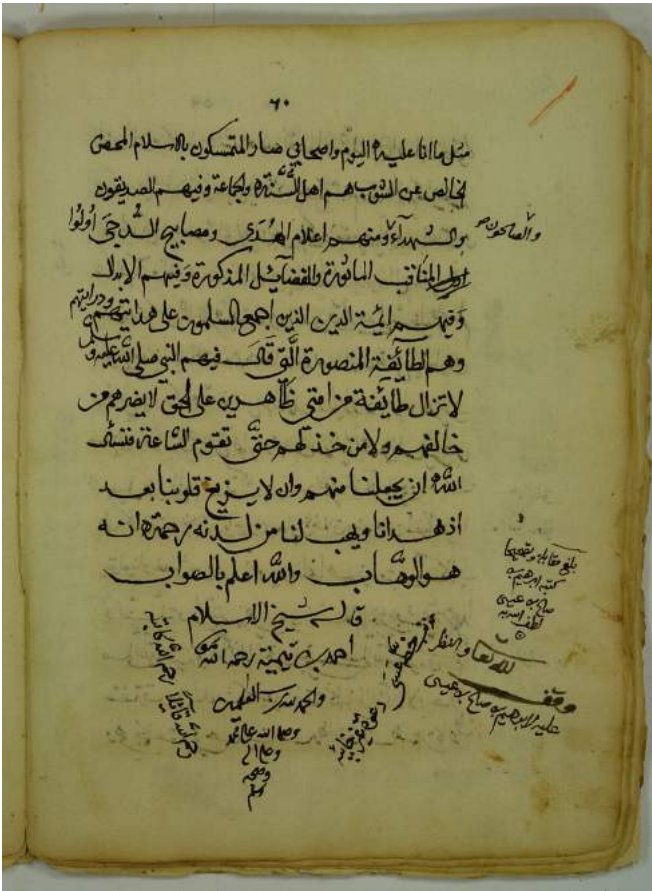 ٦٠
مثل ما انا عليه اليوم واصحابي صار المتمسكون بالاسلام المحض
الخالص عن الشوب هم اهل السنة والجماعة وفيهم الصديقون
والشهدآء ومنهم اعلام الهدى ومصابيح الدجى أولوا
والصالحون صح
المناقب الماثورة والفضآئل المذكورة وفيهم الابدال
وفيهم ائمة الدين الذين اجمع المسلمون على هدايتهم ودرايتهم
وهم الطآئفة المنصورة التي قال فيهم النبي صلى الله عليه وسلم
لا تزال طآئفة من امتي ظاهرين على الحق لا يضرهم من
خالفهم ولا من خذلهم حتى تقوم الساعة فنسئل
الله ان يجعلنا منهم وان لا يزيغ قلوبنا بعد
اذ هدانا ويهب لنا من لدنه رحمة انه
هو الوهاب والله اعلم بالصواب
قاله شيخ الاسلام
احمد بن تيمية رحمه الله
والحمد لله رب العلمين
وصلى الله على محمد
وعلى اله
وصحبه
وسلم
رحم الله قائلا رحم الله كاتبه
بلغ مقابلة وتصحيحا
كتبه ابرهيم بن
صالح بن عيسى
لطف الله به
وقف
عليه ابرهيم بن صالح بن عيسى